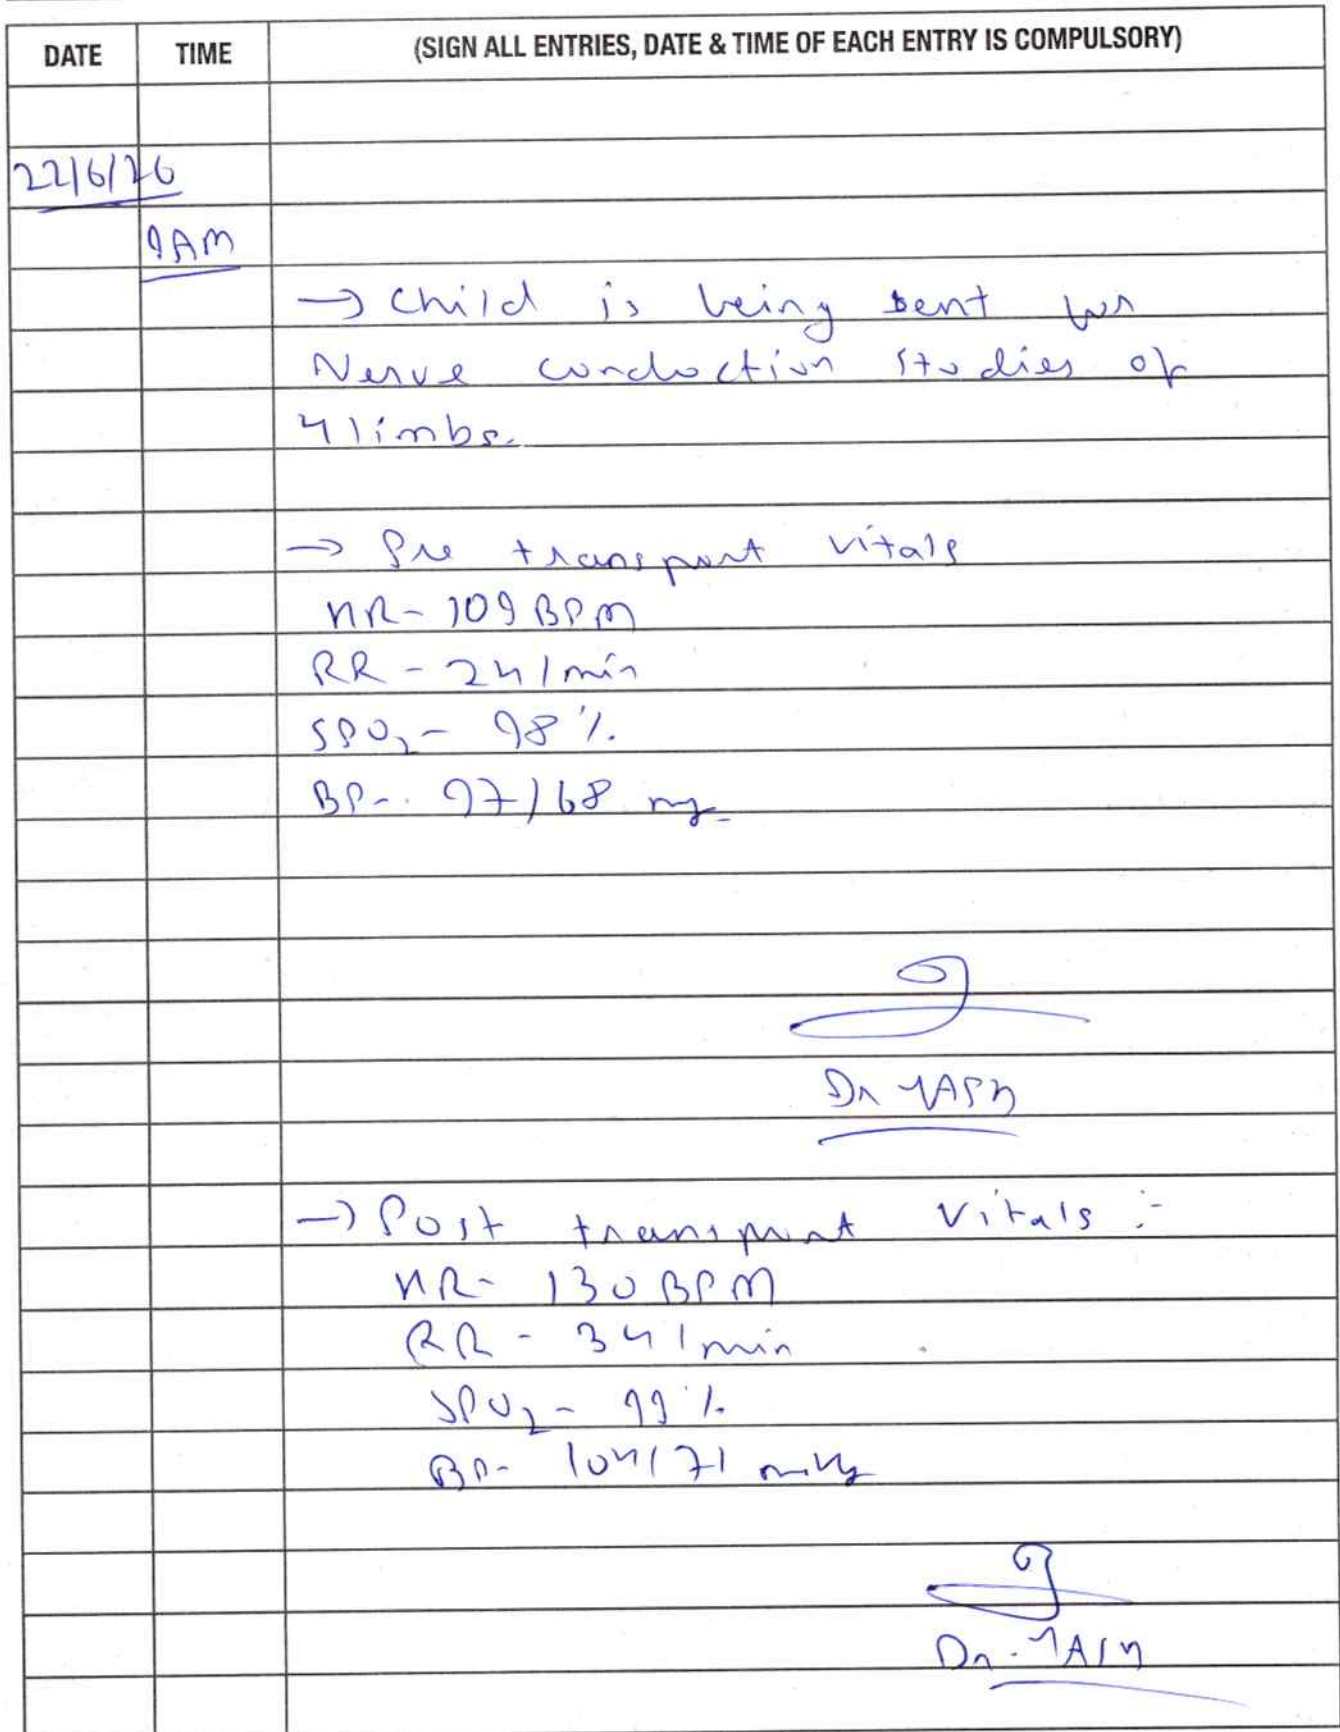 DATE TIME (SIGN ALL ENTRIES, DATE & TIME OF EACH ENTRY IS COMPULSORY)
22/6/26
9AM
→ Child is being sent for
Nerve conduction studies of
4 limbs.
→ Pre transport vitals
HR- 109 BPM
RR - 24/min
SPO2 - 98 %
BP- 97/68
Dr YASH
→ Post transport vitals :-
HR- 130 BPM
RR - 34/min
SPO2 - 99 %
BP- 104/71 mmHg
Dr. YASH